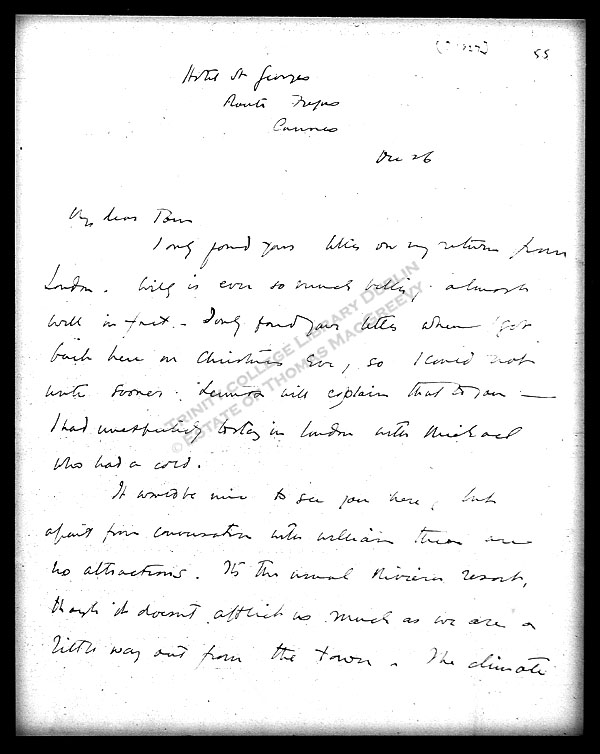 55
Hotel St Georges
Route Frejus
Cannes
Dec 26
My dear Tom
I only found your letter on my return from
London. Willy is ever so much better, almost
well in fact. - I only found your letter when I got
back here on Christmas Eve, so I could not
write sooner. Lennox will explain that to you —
I had unexpectedly to stay in London with Michael
who had a cold.
It would be nice to see you here, but
apart from conversation with William there are
no attractions. It's the usual Riviera resort,
though it doesn't afflict us much as we are a
little way out from the town. The climate
TRINITY COLLEGE LIBRARY DUBLIN
© ESTATE OF THOMAS MACGREEVY